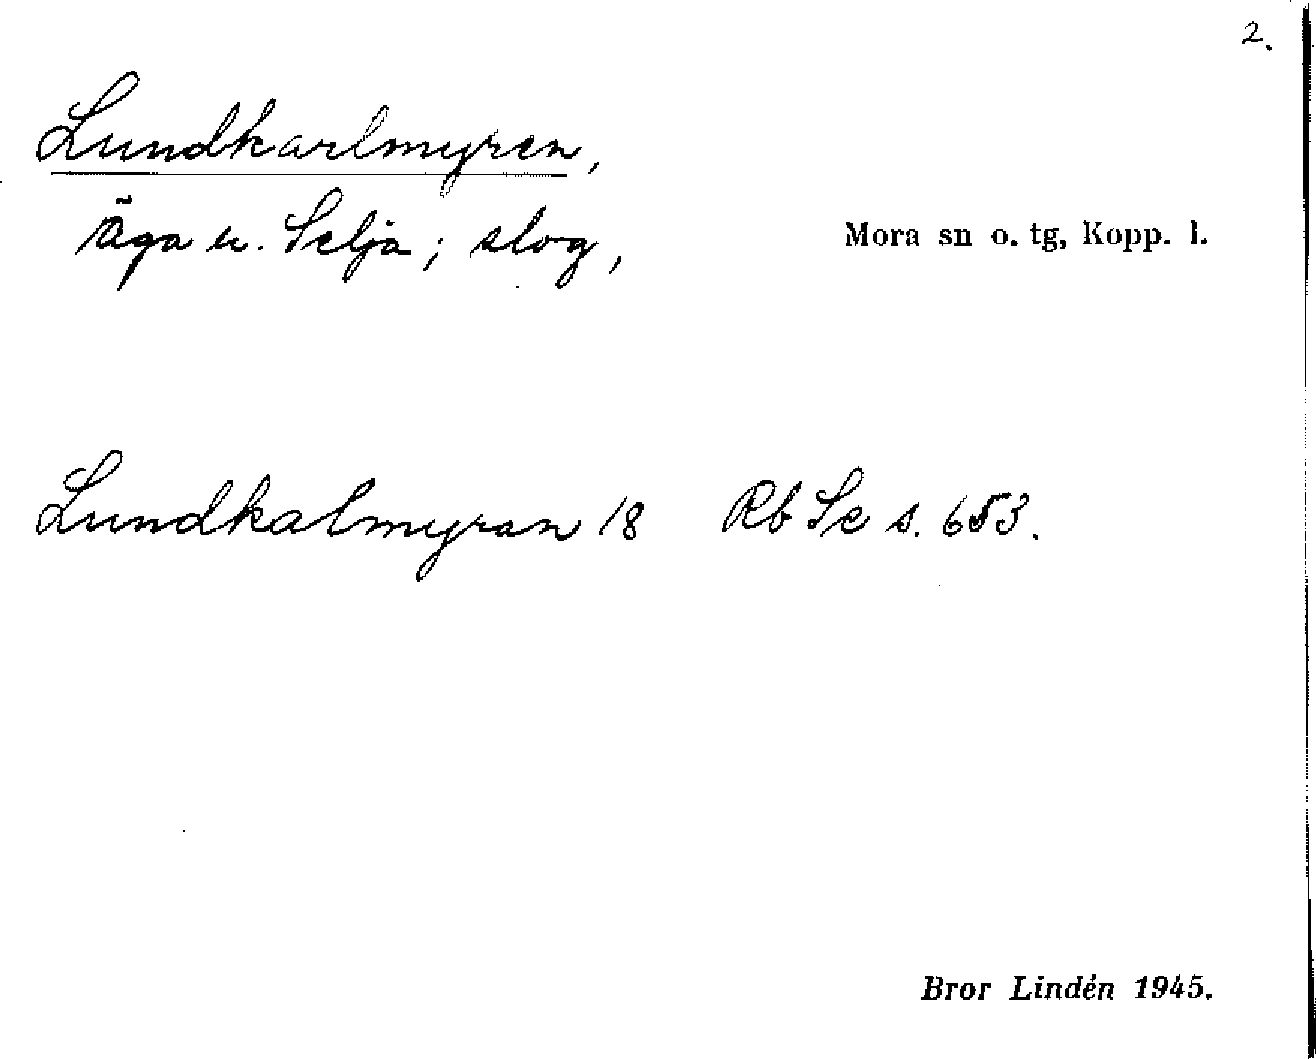 2.
Lundkarlmyren,
äga u. Selja; slog,
Mora sn o. tg, Kopp. l.
Lundkalmyran 18 Rb Se s. 653.
Bror Lindén 1945.